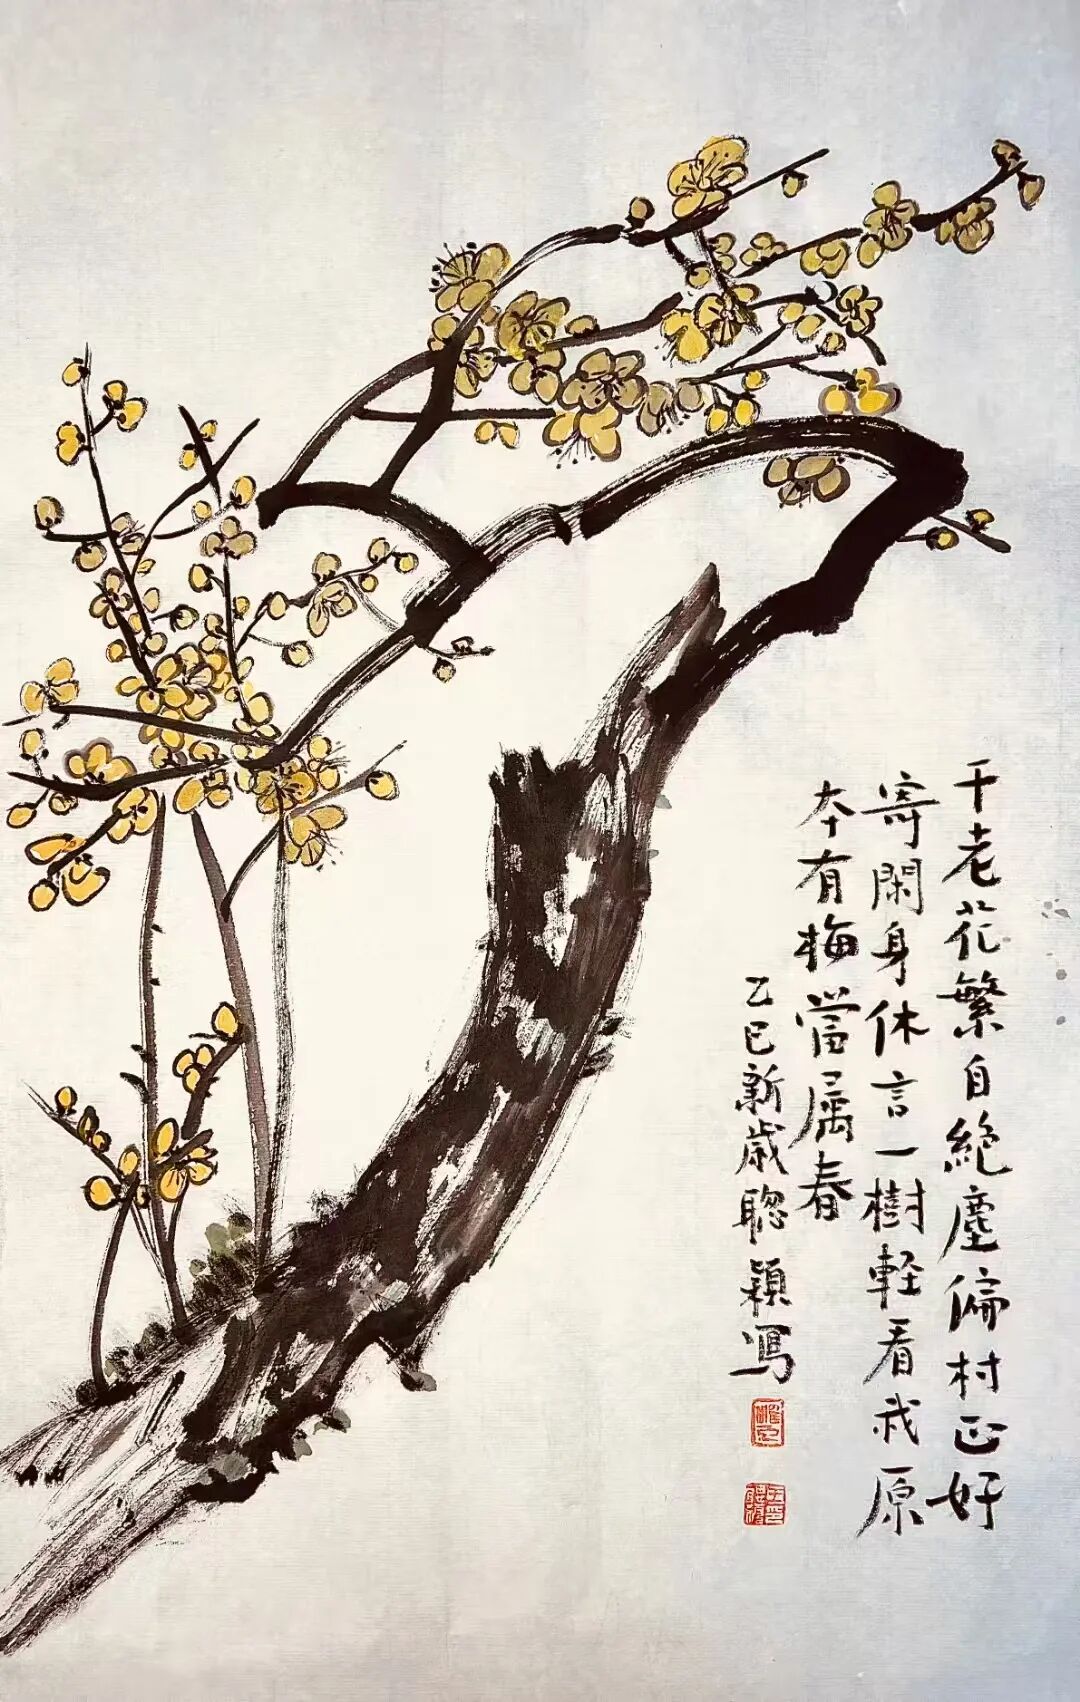 干老花繁自絶塵偏村正好
寄閑身休言一樹輕看我原
本有梅當属春
乙巳新歲聰穎寫